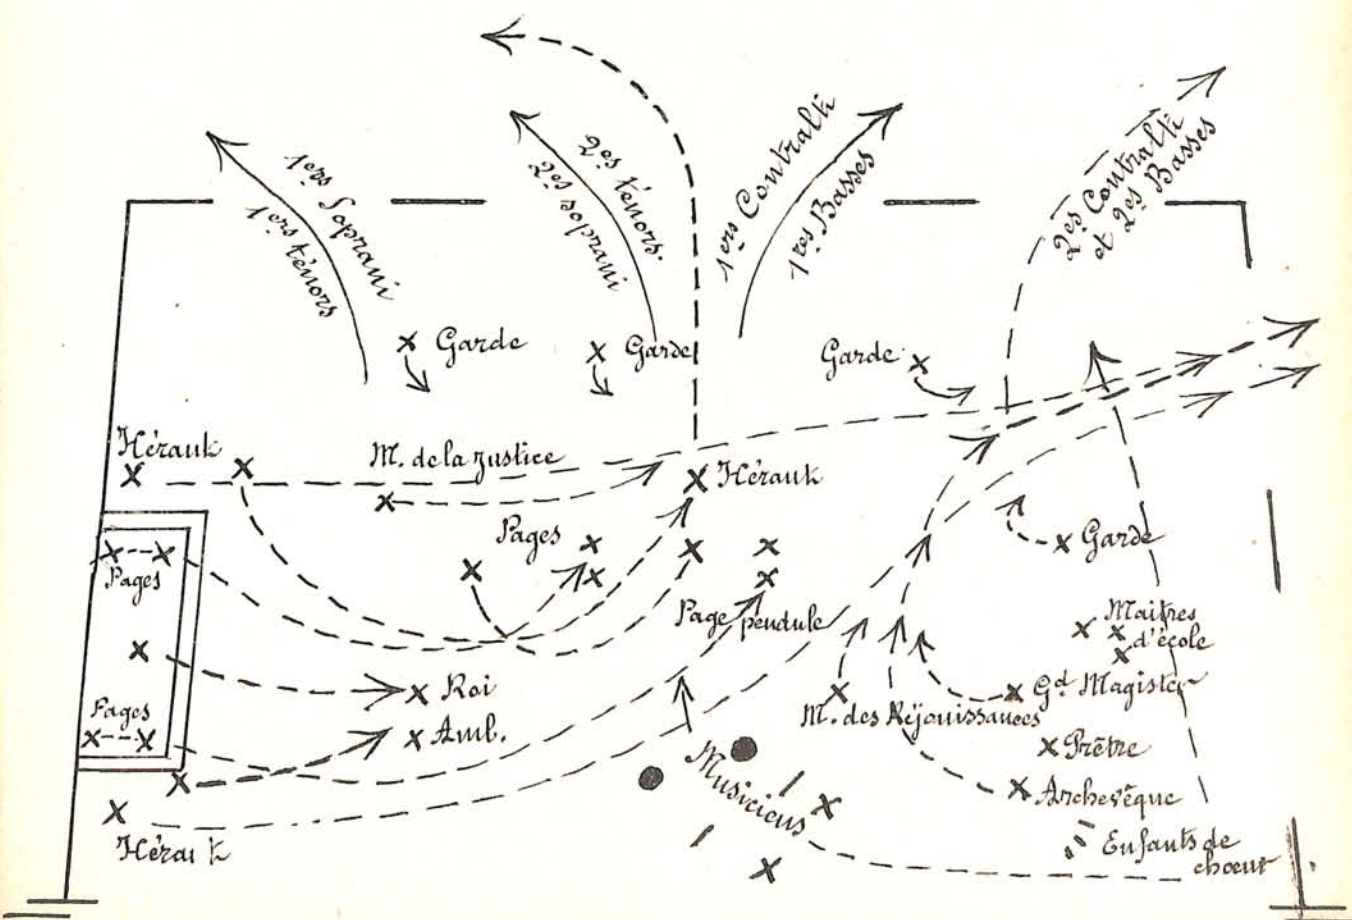 1ers Soprani
1ers ténors
2es ténors.
2es soprani
1ers Contralti
1res Basses
2es Contralti
et 2es Basses
Garde
Garde
Garde
Hérault
M. de la Justice
Hérault
Pages
Garde
Pages
Page pendule
Maitres
d'école
Roi
Gd Magister
Pages
M. des Réjouissances
Amb.
Prêtre
Musiciens
Archevêque
Hérault
Enfants de
choeur